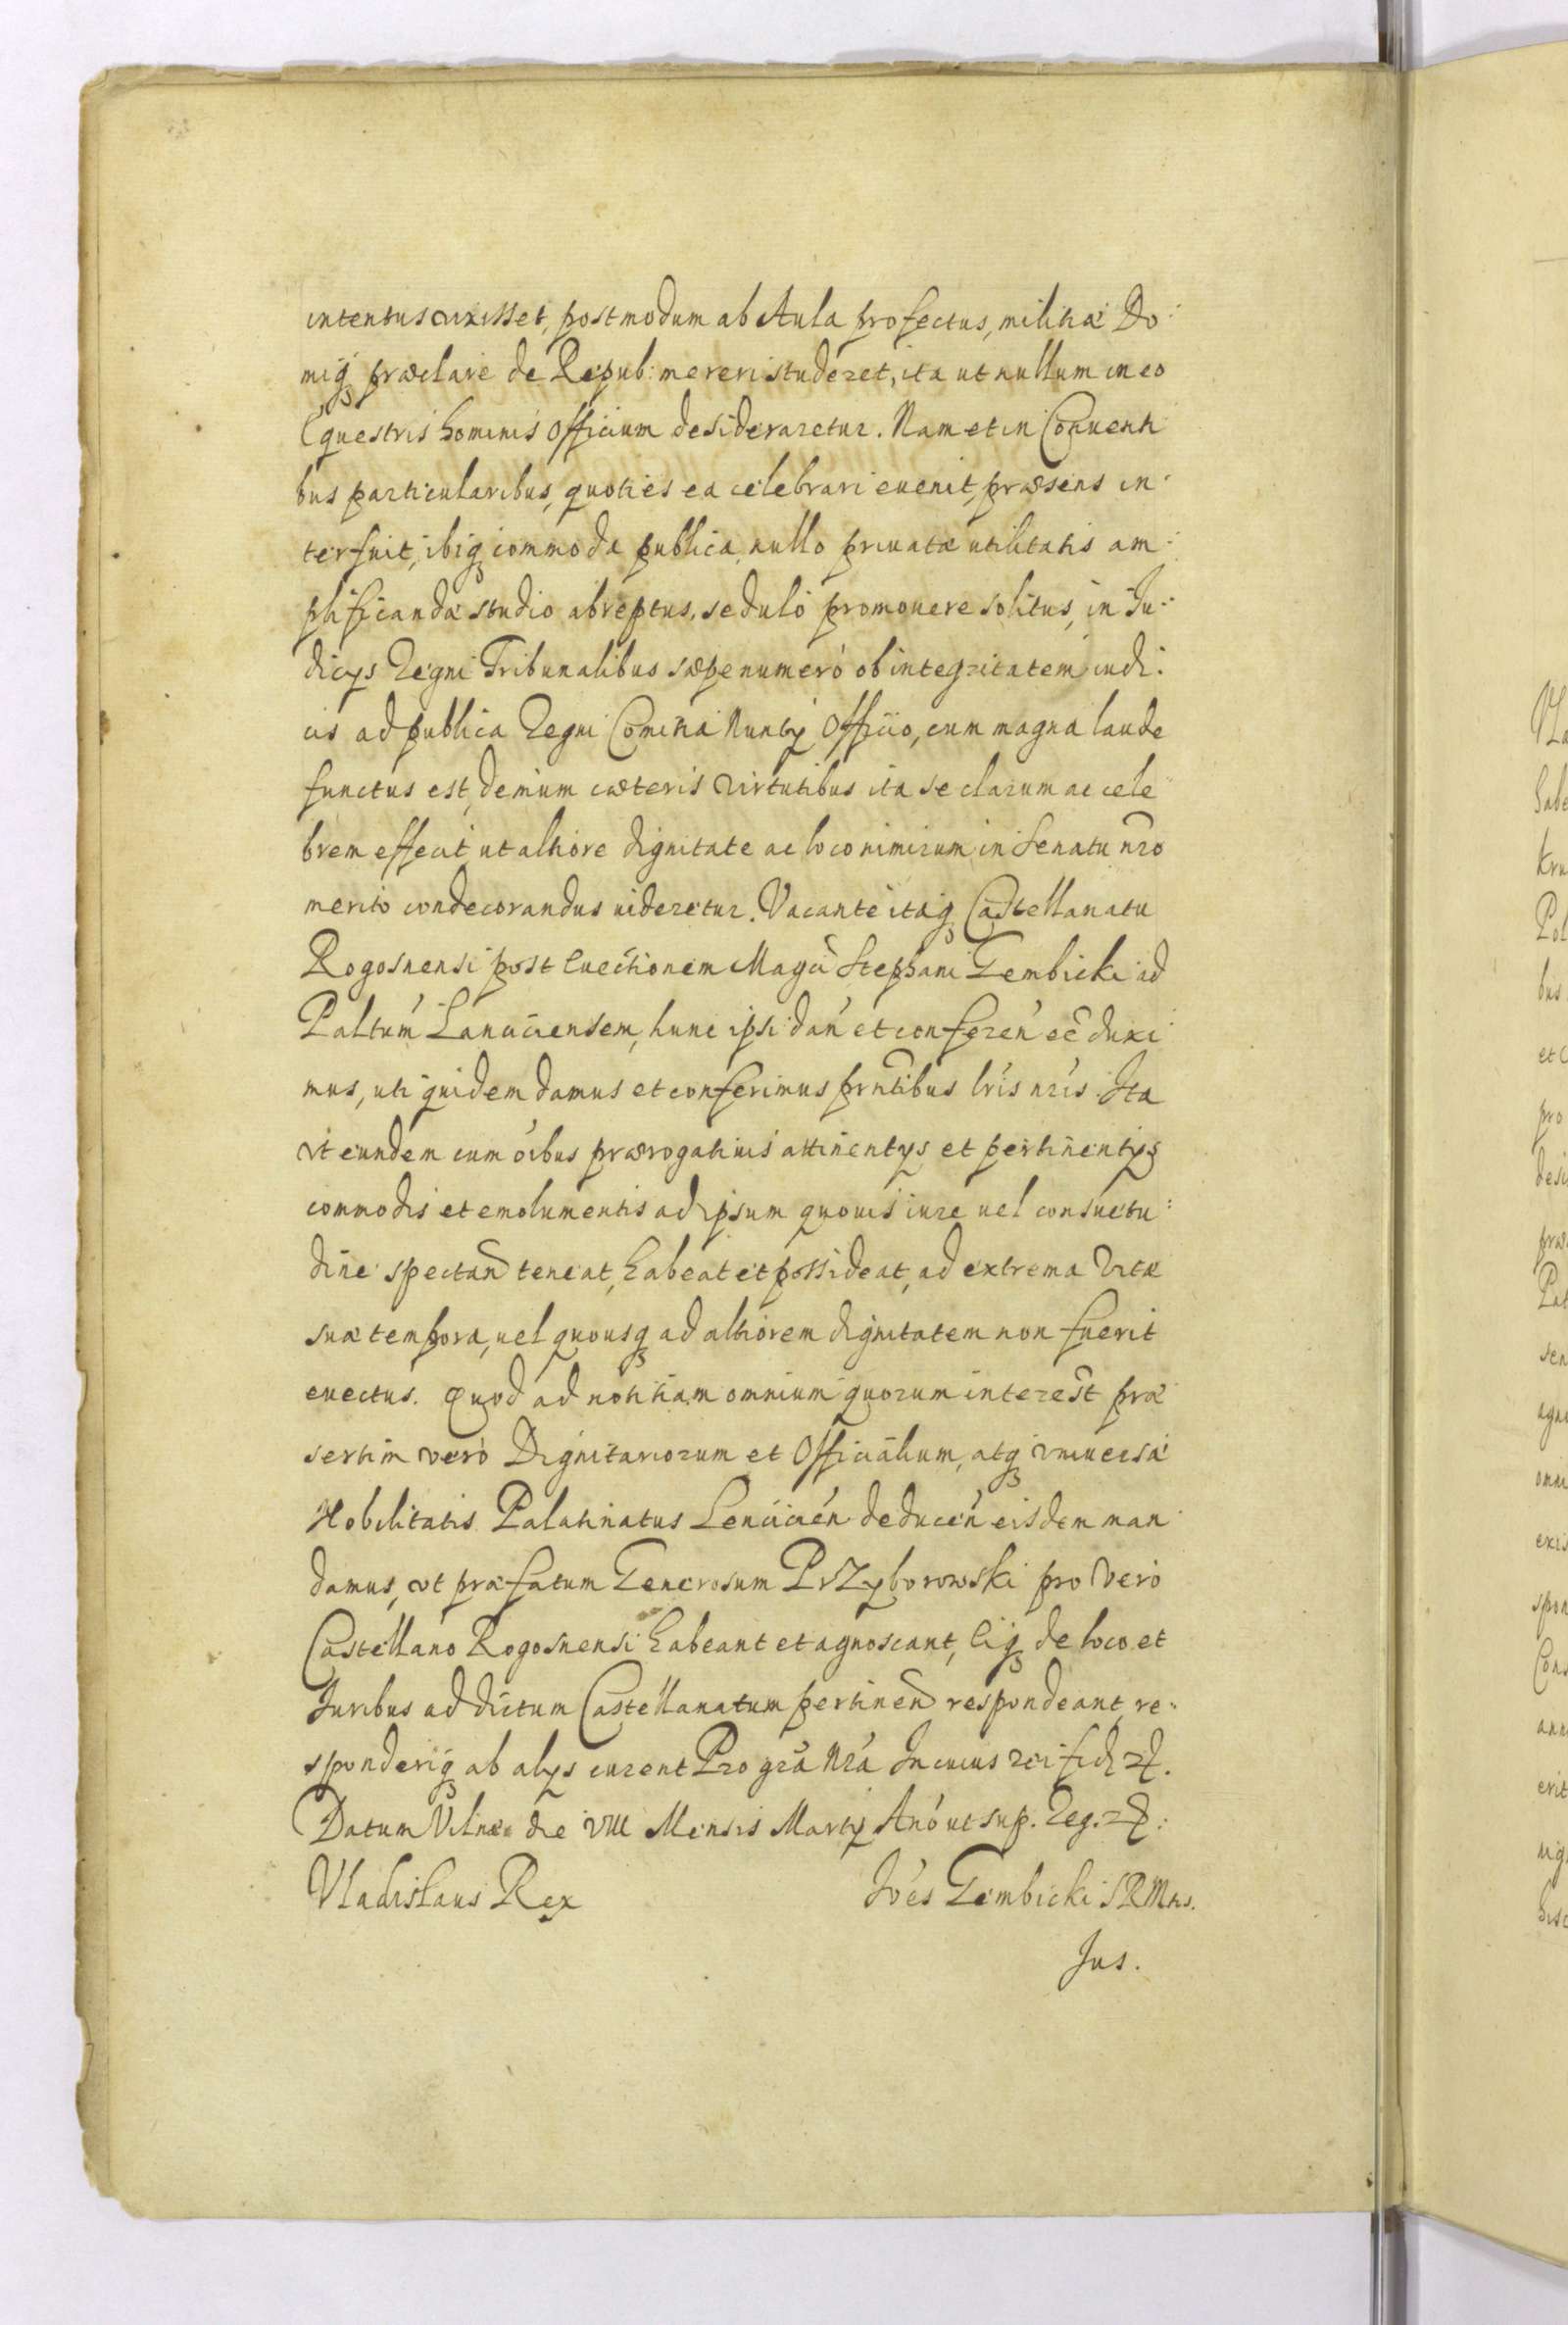 intentus vixisset, postmodum ab Aula profectus, militiæ Do-
miq̃ præclare de Repub: mereri studeret, ita ut nullum in eo
Equestris hominis Officium desideraretur. Nam et in Conventi
bus particularibus, quoties ea celebrari evenit, præsens in-
terfuit, ibiq̃ commoda publica, nullo privatæ utilitatis am-
plificandæ studio abreptus, seduló promovere solitus, in Ju-
dicys Regni Tribunalibus sæpenumeró ob integritatem iudi:
cis ad publica Regni Comitia Nuntÿ Officio, cum magna laude
functus est, demum cæteris virtutibus ita se clarum ac cele
brem effecit ut altiore dignitate ac loco nimirum in Senatu nr̃o
merito condecorandus uideretur. Vacante itaq̃ Castellanatu
Rogosnensi post Euectionem Magci Stephani Gembicki ad
Paltum Lanciciensem, hunc ipsi dan̄ et conferen̄ eē duxi
mus, uti quidem damus et conferimus prñtibus lr̃is nr̃is. Ita
vt eundem cum oībus prærogatiuis attinentys et pertinentys
commodis et emolumentis ad ipsum quouis iure uel consuetu:
dine spectan̄ teneat, habeat et possideat, ad extrema vitæ
suæ tempora, uel quousq̃ ad altiorem dignitatem non fuerit
euectus. Quod ad notitiam omnium quorum interest præ
sertim veró Dignitariorum et Officialium, atq̃ vniuersæ
Nobilitatis Palatinatus Lencicien̄ deducen̄ eisdem man
damus, vt præfatum Generosum Przyborowski pro vero
Castellano Rogosnensi habeant et agnoscant, Eiq̃ de loco et
Iuribus ad dictum Castellanatum pertinen̄ respondeant, re-
sponderiq̃ ab alys curent Pro gr̃a Nr̃a In cuius rei fid: etc.
Datum Vilnæ die VIII Mensis Martÿ Anō ut sup. Reg. etc:
Vladislaus Rex
Ioēs Gembicki S R Mtis.
Jus.